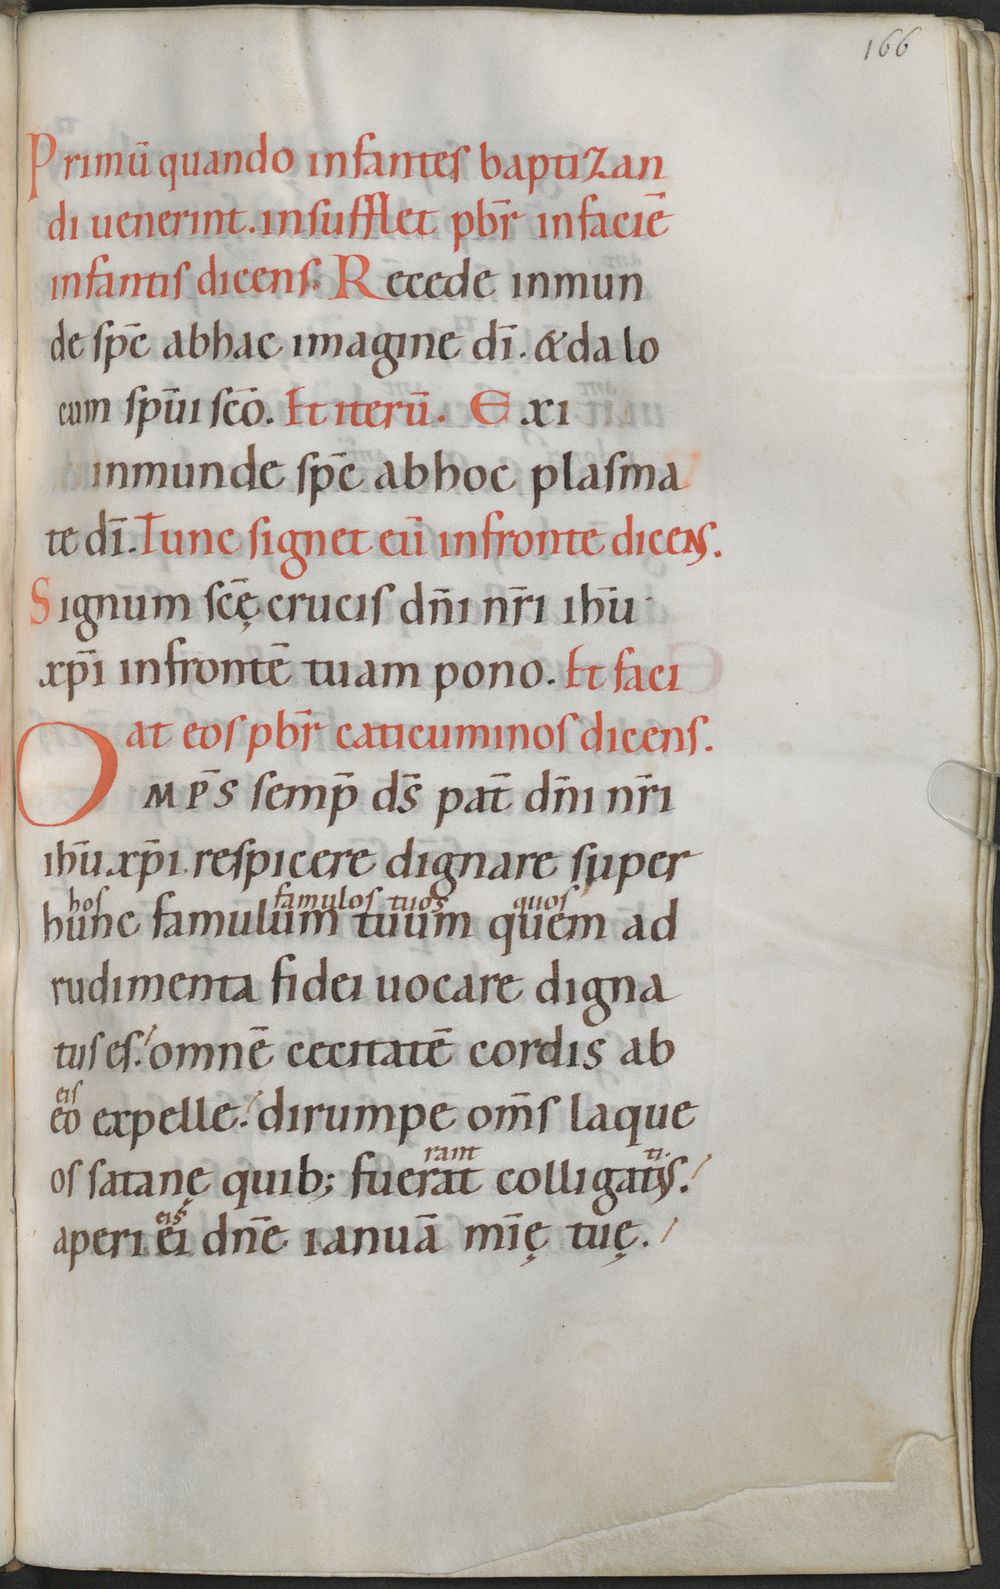 166
Primū quando infantes baptizan
di uenerint. insufflet pb̄r in faciē
infantis dicens. Recede inmun
de sp̄c ab hac imagine dī. & da lo
cum sp̄ui sc̄o. Et iterū. Exi
inmunde sp̄c ab hoc plasma
te dī. Tunc signet eū in fronte dicens.
Signum sc̄ę crucis dn̄i nr̄i ih̄u
xp̄i in frontē tuam pono. Et faci
at eos pb̄r caticuminos dicens.
Omp̄s semp̄ ds̄ pat̄ dn̄i nr̄i
ih̄u xp̄i. respicere dignare super
hos famulos tuos quos
hunc famulum tuum quem ad
rudimenta fidei uocare digna
tus es. omnē cecitatē cordis ab
eis
eo expelle. dirumpe om̄s laque
rant ti.
os satanę quib; fuerat colligatus.
eis
aperi ei dn̄e ianuā mīę tuę.